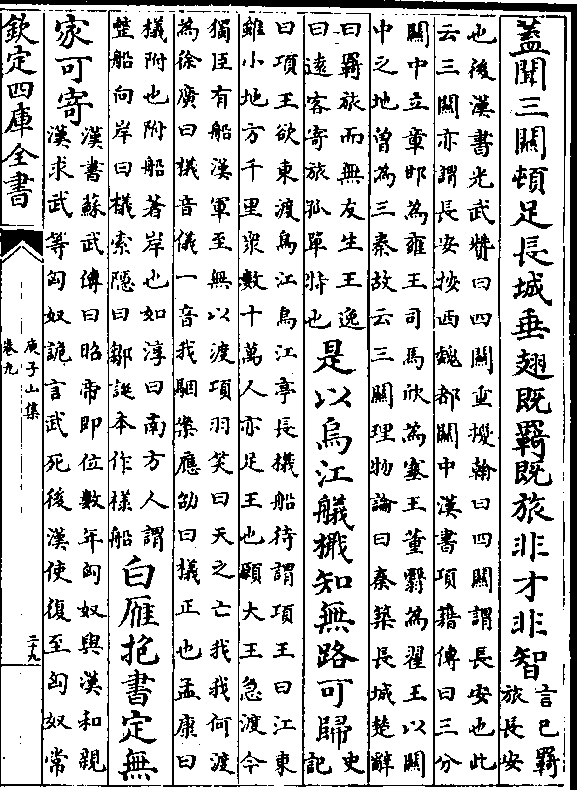 蓋聞三關頓足長城垂翅既羇既旅非才非智
言己羇
旅長安
也後漢書光武贊曰四關重擾翰曰四關謂長安也此
云三關亦謂長安按西魏都關中漢書項籍傳曰三分
關中立章邯為雍王司馬欣為塞王董翳為翟王以關
中之地曾為三秦故云三關理物論曰秦築長城楚辭
曰羇旅而無友生王逸
曰逺客寄旅孤單特也
是以烏江艤檝知無路可歸
史
記
曰項王欲東渡烏江烏江亭長檥船待謂項王曰江東
雖小地方千里衆數十萬人亦足王也願大王急渡今
獨臣有船漢軍至無以渡項羽笑曰天之亡我我何渡
為徐廣曰檥音儀一音我駰案應劭曰檥正也孟康曰
檥附也附船著岸也如淳曰南方人謂
整船向岸曰檥索隱曰鄒誕本作樣船
白雁抱書定無
家可寄
漢書蘇武傳曰昭帝即位數年匈奴與漢和親
漢求武等匈奴詭言武死後漢使復至匈奴常
欽定四庫全書
庾子山集
卷九
二十九